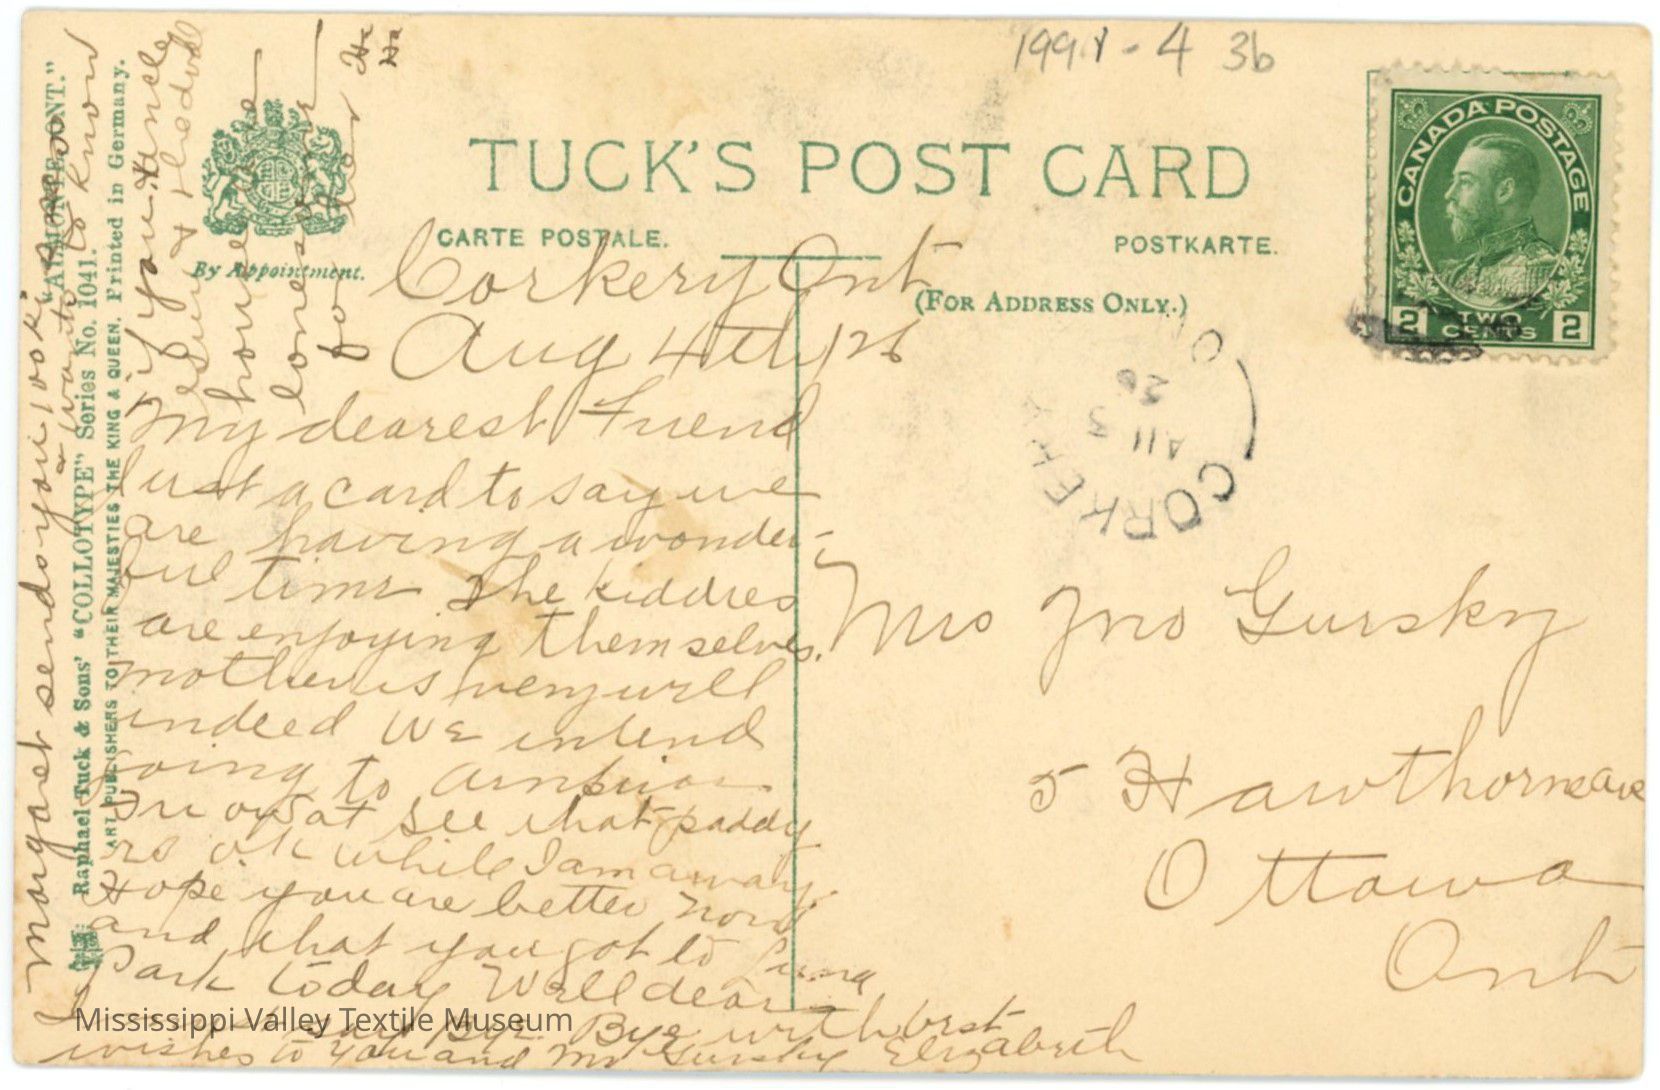 1991-4 36
TUCK'S POST CARD
CARTE POSTALE.
POSTKARTE.
By Appointment.
(FOR ADDRESS ONLY.)
CANADA POSTAGE
2 TWO CENTS 2
CORKERY
AU 5
26
O
Corkery Ont
Aug 4th/26
My dearest Friend
Just a card to say we
are having a wonder-
ful time The kiddies
are enjoying themselves.
mother is very well
indeed We intend
going to Arnprior
Fri or Sat see that paddy
is o.k while I am away.
Hope you are better now
and that you got to Luna
Park today Well dear
I must say Bye Bye with best
wishes to you and Mr Gursky Elizabeth
Margaret sends you 100 k's
& wants to know
if you & Uncle
house
lonesome
Ha
Ha
"ALMONTE, ONT."
Raphael Tuck & Sons' "COLLOTYPE" Series No. 1041.
ART PUBLISHERS TO THEIR MAJESTIES THE KING & QUEEN. Printed in Germany.
Mrs Jno Gursky
5 Hawthorne ave
Ottawa
Ont
Mississippi Valley Textile Museum